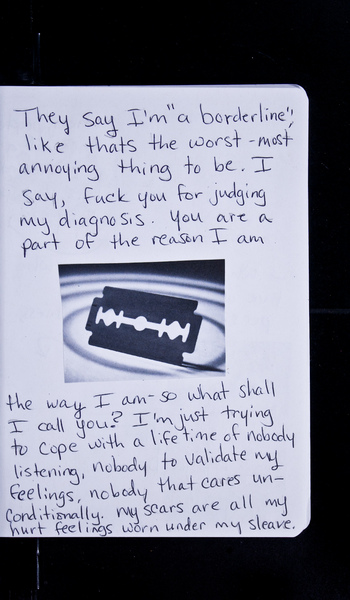 They say I'm "a borderline",
like thats the worst-most
annoying thing to be. I
say, fuck you for judging
my diagnosis. you are a
part of the reason I am
the way I am-so what shall
I call you? I'm just trying
to cope with a lifetime of nobody
listening, nobody to validate my
feelings, nobody that cares un-
conditionally. my scars are all my
hurt feelings worn under my sleave.